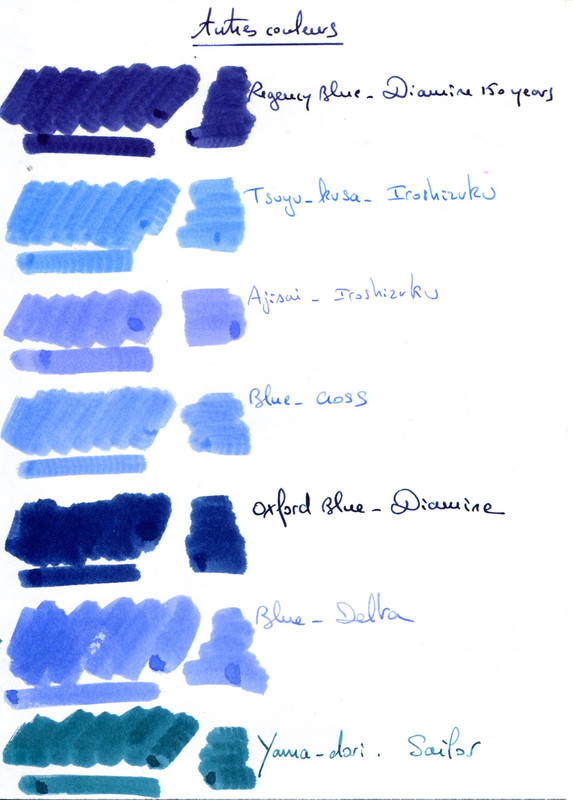 Autres couleurs
Regency Blue - Diamine 150 years
Tsuyu-kusa - Iroshizuku
Ajisai - Iroshizuku
Blue - Cross
Oxford Blue - Diamine
Blue - Delta
Yama-dori. Sailor